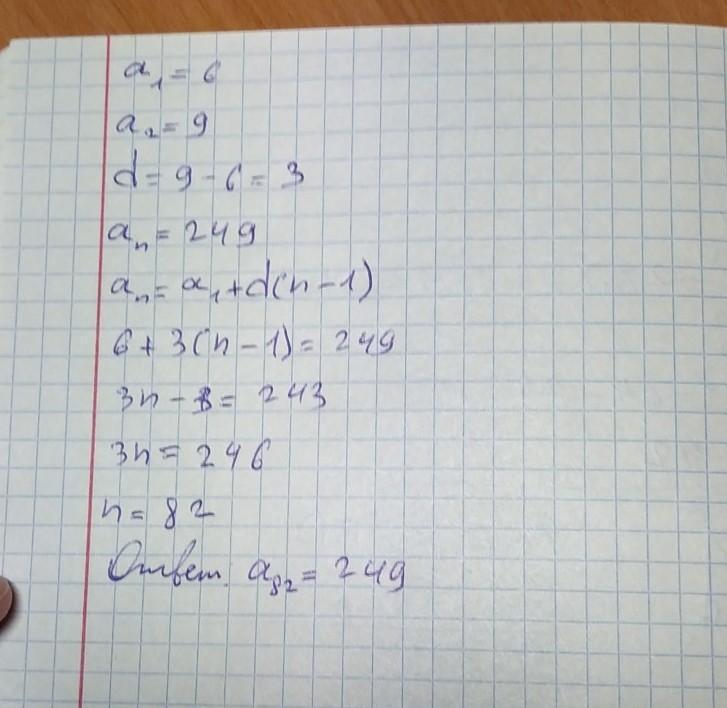 a₁ = 6
a₂ = 9
d = 9 - 6 = 3
aₙ = 249
aₙ = a₁ + d(n - 1)
6 + 3(n - 1) = 249
3n - 3 = 243
3n = 246
n = 82
Ответ. a₈₂ = 249